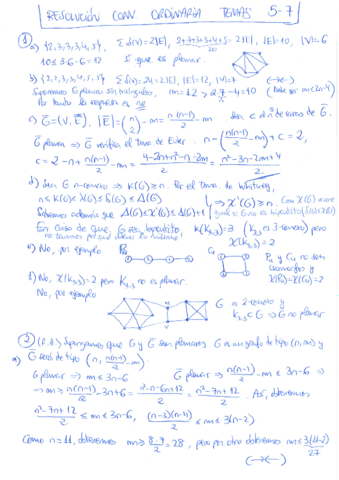 RESOLUCIÓN CONV. ORDINARIA TEMAS 5-7
1 a) {2,3,3,3,4,5}, Σδ(V)=2|E|, 2+3+3+3+4+5=2|E|, |E|=10, |V|=6
20
10≤3·6-6=12 Sí que es planar.
b) Σδ(V)=24=2|E|, |E|=12, |V|=7
Supongamos G planar sin triángulos, m=12>2·7-4=10
Por tanto la respuesta es no
c) G̅=(V,E̅), |E̅|=(n 2)-m=n(n-1)/2-m. Sea c el nº de caras de G̅.
G̅ planar ⇒ G̅ verifica el Tma. de Euler. n-(n(n-1)/2-m)+c=2,
c=2-n+n(n-1)/2-m=(4-2n+n²-n-2m)/2=(n²-3n-2m+4)/2
d) Sea G n-conexo ⇒ K(G)≥n. Por el Tma. de Whitney,
n≤K(G)≤λ(G)≤δ(G)≤Δ(G)
⇒χ'(G)≥n.
Sabemos además que Δ(G)≤χ'(G)≤Δ(G)+1
En caso de que G sea bipartito, K(K3,3)=3 (K3,3 es 3-conexo) pero
χ(K3,3)=2
e) No, por ejemplo P4 C4
P4 y C4 no son isomorfos y
χ(P4)=χ(C4)=2
f) No, χ(K3,3)=2 pero K3,3 no es planar.
No, por ejemplo
G es 2-conexo y
K3,3⊂G ⇒ G no planar
2 (P.A.) Supongamos que G y G̅ son planares G es un grafo de tipo (n,m) y
a) G̅ será de tipo (n, n(n-1)/2-m)
G planar ⇒ m≤3n-6 G̅ planar ⇒ n(n-1)/2-m≤3n-6 ⇒
⇒ m≥n(n-1)/2-3n+6=(n²-n-6n+12)/2=(n²-7n+12)/2. Así, obtenemos
(n²-7n+12)/2≤m≤3n-6, (n-3)(n-4)/2≤m≤3(n-2)
Como n=11, obtenemos m≥8·7/2=28, pero por otro obtenemos m≤3(11-2)
27
(→←)